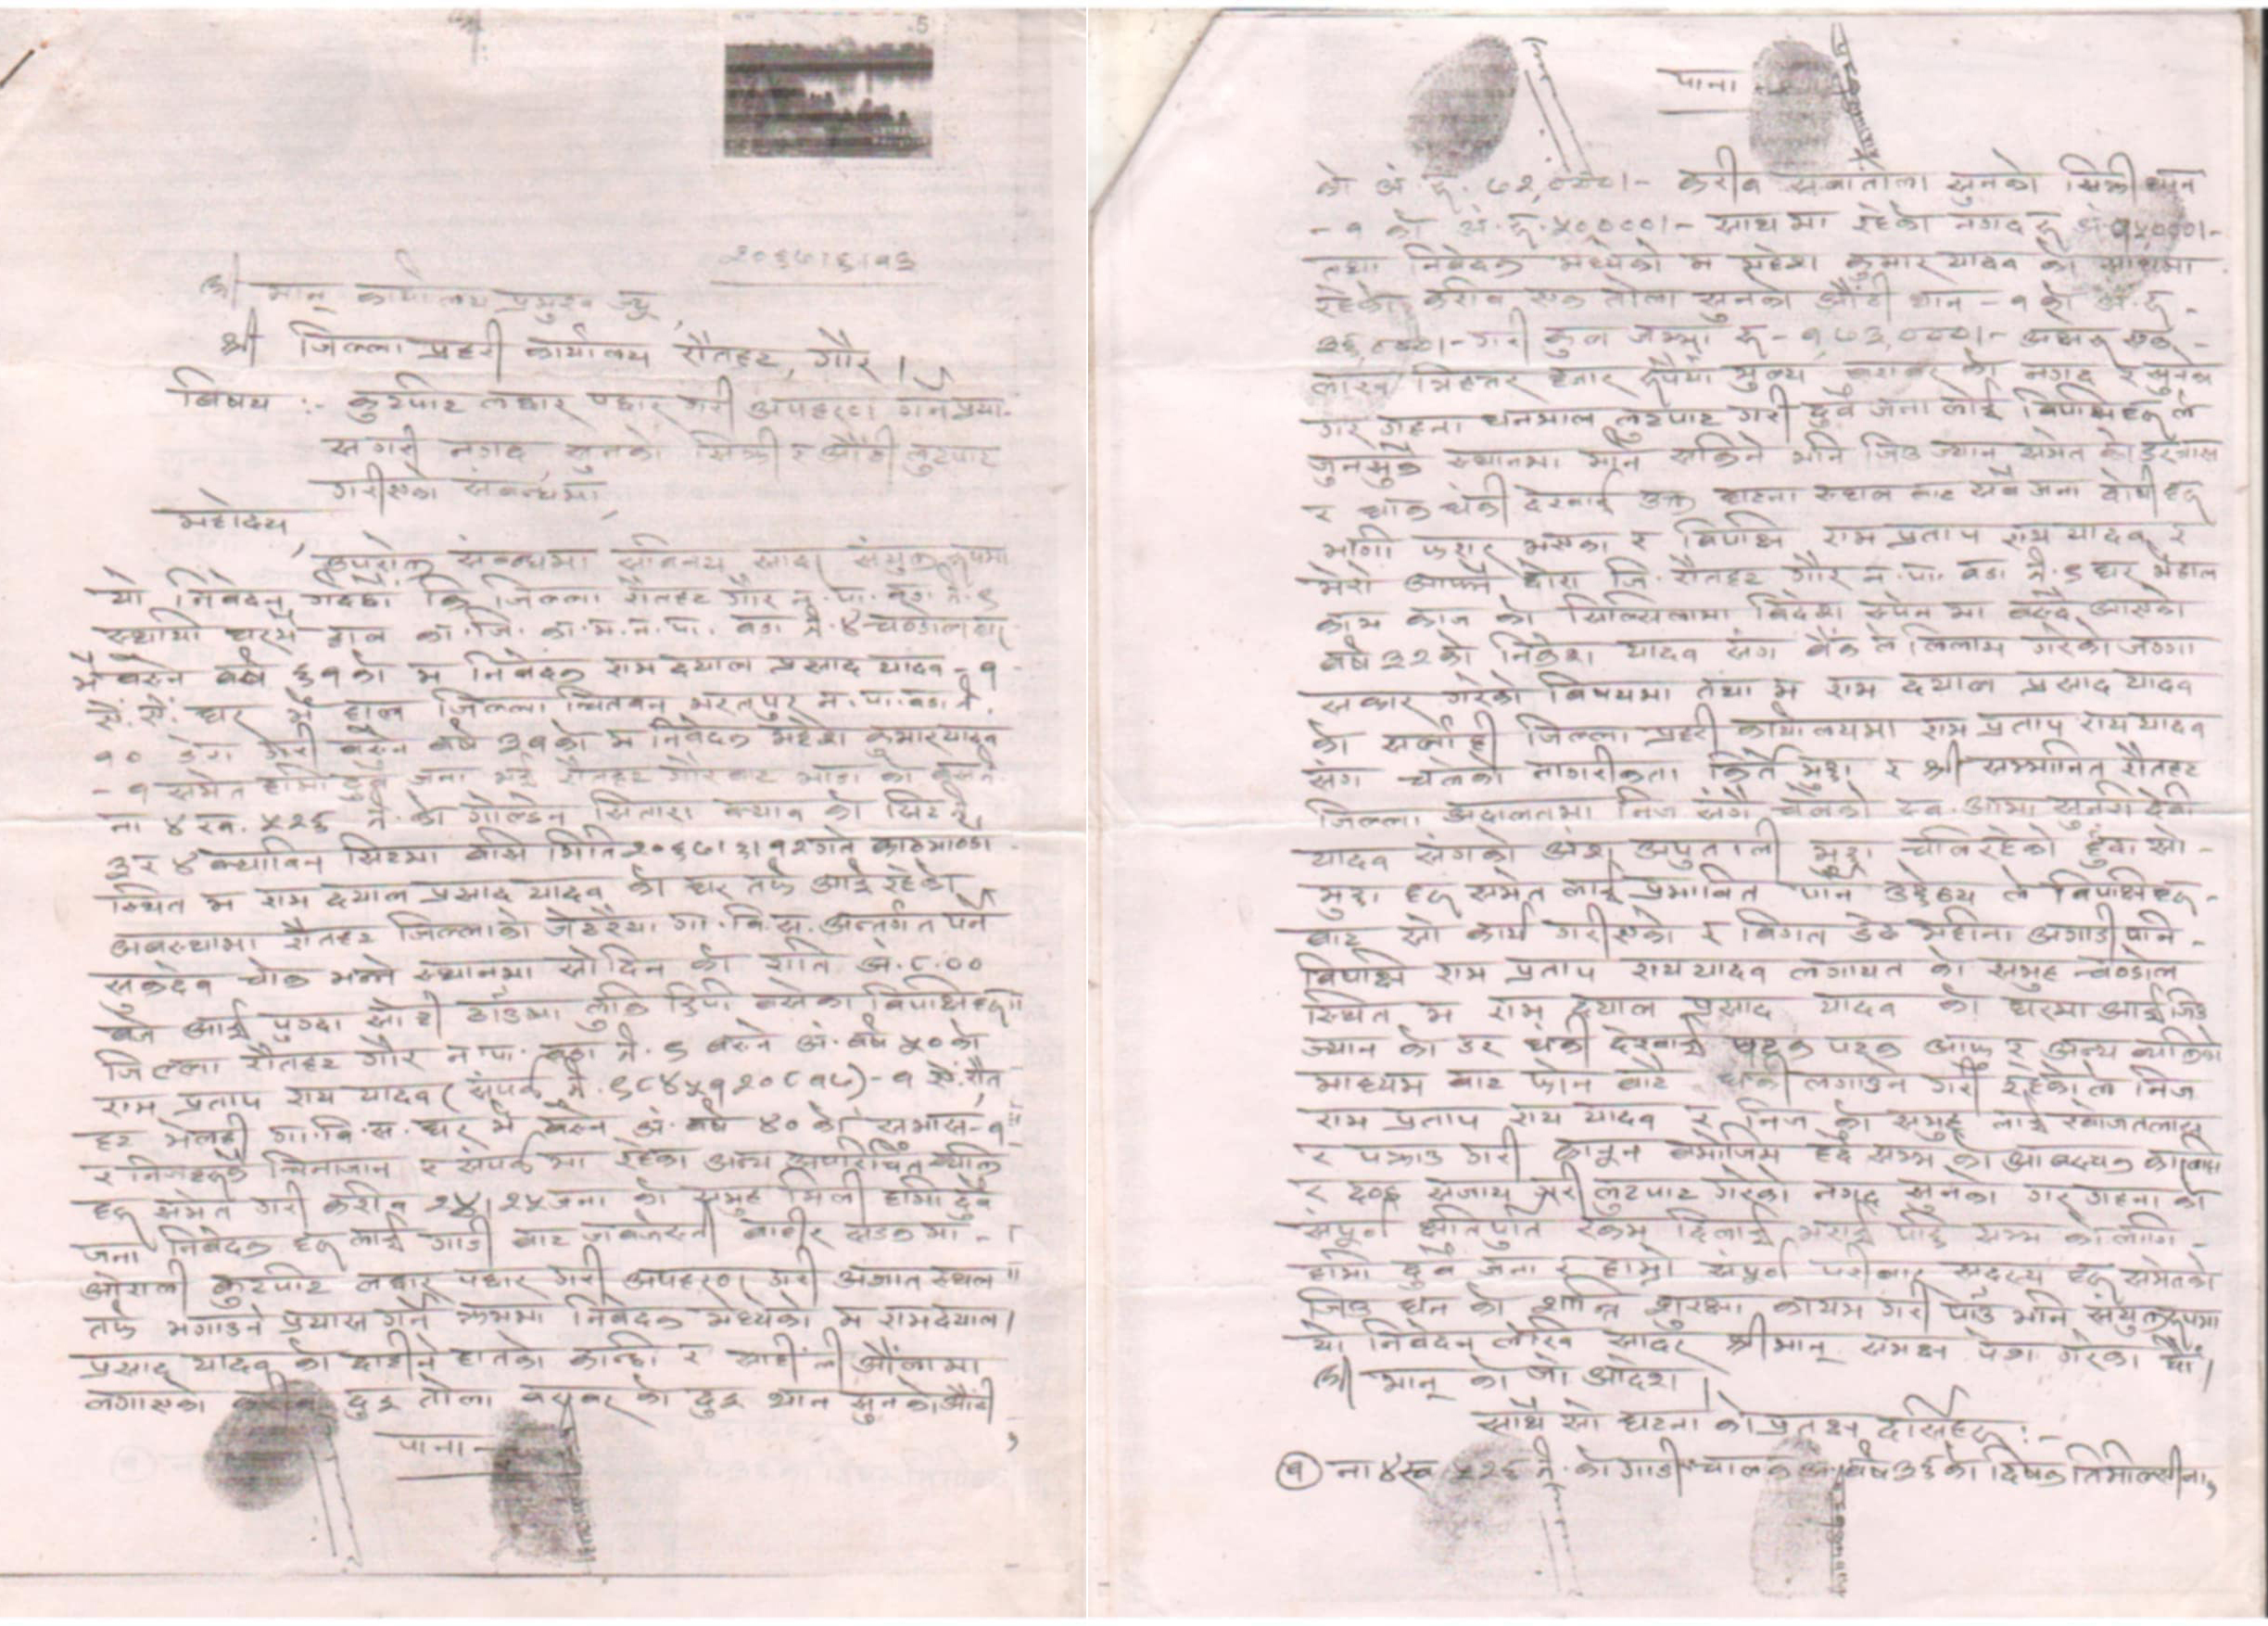 5
२०६७।६।१६
श्री मान् कार्यालय प्रमुख ज्यू,
श्री जिल्ला प्रहरी कार्यालय रौतहट, गौर ।
विषय :- कुटपीट लछार पछार गरी अपहरण गर्ने प्रया-
स गरी नगद सुनको सिक्री र औंठी लुटपाट
गरीएको संबन्धमा,
महोदय,
उपरोक्त संबन्धमा सविनय सादर संयुक्त रूपमा
यो निवेदन गर्दछौं कि जिल्ला रौतहट गौर न.पा. वडा नं. ९
स्थायी घर भै हाल का.जि. का.म.न.पा. वडा नं. ४ चण्डोल घर
भै बस्ने वर्ष ६१ को म निवेदक राम दयाल प्रसाद यादव - १
ऐं. ऐं. घर भै हाल जिल्ला चितवन भरतपुर न.पा. वडा नं.
१० डेरा गरी बस्ने वर्ष ३१ को म निवेदक महेश कुमार यादव
- १ समेत हामी दुवै जना रौतहट गौरबाट
ना ४ ख. ५२६ नं. को गोल्डेन सितारा क्याव को सिट नं.
३ र ४ क्याविन सिटमा बसि मिति २०६७।६।१२ गते काठमाण्डौ
स्थित म राम दयाल प्रसाद यादव को घर तर्फ आई रहेको
अवस्थामा रौतहट जिल्लाको जेठरैया गा.वि.स. अन्तर्गत पर्ने
सुकदेव चोक भन्ने स्थानमा सो दिन को राति अं. ८.००
बजे आई पुग्दा सोही ठाउँमा लुकि छिपी बसेका विपक्षीहरू
जिल्ला रौतहट गौर न.पा. वडा नं. ९ बस्ने अं. वर्ष ५० को
राम प्रताप राय यादव (संपर्क नं. ९८४५१२०८१७) - १ ऐं. रौत
हट गा.वि.स. घर भै बस्ने अं. वर्ष ४० को - १
र निजहरूकै चिनाजान र संपर्क मा रहेका अन्य अपरिचित व्यक्ति
हरू समेत गरी करीव २४।२५ जना को समुह मिली हामी दुवै
जना निवेदक हरू लाई गाडी बाट जबर्जस्ती बाहीर सडक मा -
ओराली कुटपीट लछार पछार गरी अपहरण गरी अज्ञात स्थल
तर्फ भगाउने प्रयास गर्ने क्रममा निवेदक मध्येको म राम दयाल
प्रसाद यादव को दाहीने हातको कान्छी र साहींली औंला मा
लगाएको दुइ तोला बराबर को दुइ थान सुनको औंठी
पाना -
पाना
को अं. रु. ७२,०००।- करीव सवा तोला सुनको सिक्री थान
- १ को अं. रु. ५००००।- साथ मा रहेको नगद रु अं १५०००।-
तथा निवेदक मध्येको म महेश कुमार यादव को साथमा
रहेको करीव एक तोला सुनको औंठी थान - १ को अं. रु -
३६,०००।- गरी कुल जम्मा रु - १७३,०००।- अक्षरु एक -
लाख त्रिहत्तर हजार रूपैया मुल्य बराबर को नगद र सुनको
गर गहना धनमाल लुटपाट गरी दुवै जना लाई विपक्षीहरू ले
जुनसुकै स्थानमा मार्न सकिने भनि जिउ ज्यान समेत को डर त्रास
र धाक धंकी देखाई उक्त घटना स्थल बाट सबै जना दोषी हरू
भागी फरार भएका र विपक्षी राम प्रताप राय यादव र
मेरो आफ्नै छोरा जि. रौतहट गौर न.पा. वडा नं. ९ घर भै हाल
काम काज को सिलसिलामा विदेश स्पेन मा बस्दै आएको
वर्ष ३२ को निकेश यादव संग बैंक ले लिलाम गरेको जग्गा
सकार गरेको विषयमा तथा म राम दयाल प्रसाद यादव
को सर्लाही जिल्ला प्रहरी कार्यालयमा राम प्रताप राय यादव
संग चलेको नागरीकता किर्ते मुद्दा र श्री सम्मानित रौतहट
जिल्ला अदालतमा निज संगै चलेको देवी
यादव संगको अंश अपुताली मुद्दा चलि रहेको हुँदा सो -
मुद्दा हरू समेत लाई प्रभावित पार्ने उद्देश्य ले विपक्षीहरू -
बाट सो कार्य गरीएको र विगत डेढ महीना अगाडी पनि -
विपक्षी राम प्रताप राय यादव लगायत को समुह चण्डोल
स्थित म राम दयाल प्रसाद यादव को घरमा आई जिउ
ज्यान को डर धंकी देखाई पटक पटक आफु र अन्य व्यक्तिको
माध्यम बाट फोन बाटै धंकी लगाउने गरी रहेकोले निज
राम प्रताप राय यादव र निज को समुह लाई खोजतलास
र पक्राउ गरी कानून बमोजिम हदै सम्म को आवश्यक कारवाही
र दण्ड सजाय गरी लुटपाट गरेको नगद सुनको गर गहना को
संपूर्ण क्षतिपुर्ति रकम दिलाई भराई पाउँ सम्म को लागि -
हामी दुवै जना र हाम्रो संपूर्ण परीवार सदस्य हरू समेतको
जिउ धन को शान्ति सुरक्षा कायम गरी पाउँ भनि संयुक्त रूपमा
यो निवेदन लेखि सादर श्रीमान् समक्ष पेश गरेका छौं ।
श्री मान् को जो आदेश ।
साथै सो घटना को प्रत्यक्ष दर्सिहरू :-
१ ना ४ ख ५२६ नं. को गाडी चालक अं. वर्ष ३६ को दिपक तिमिल्सीना,